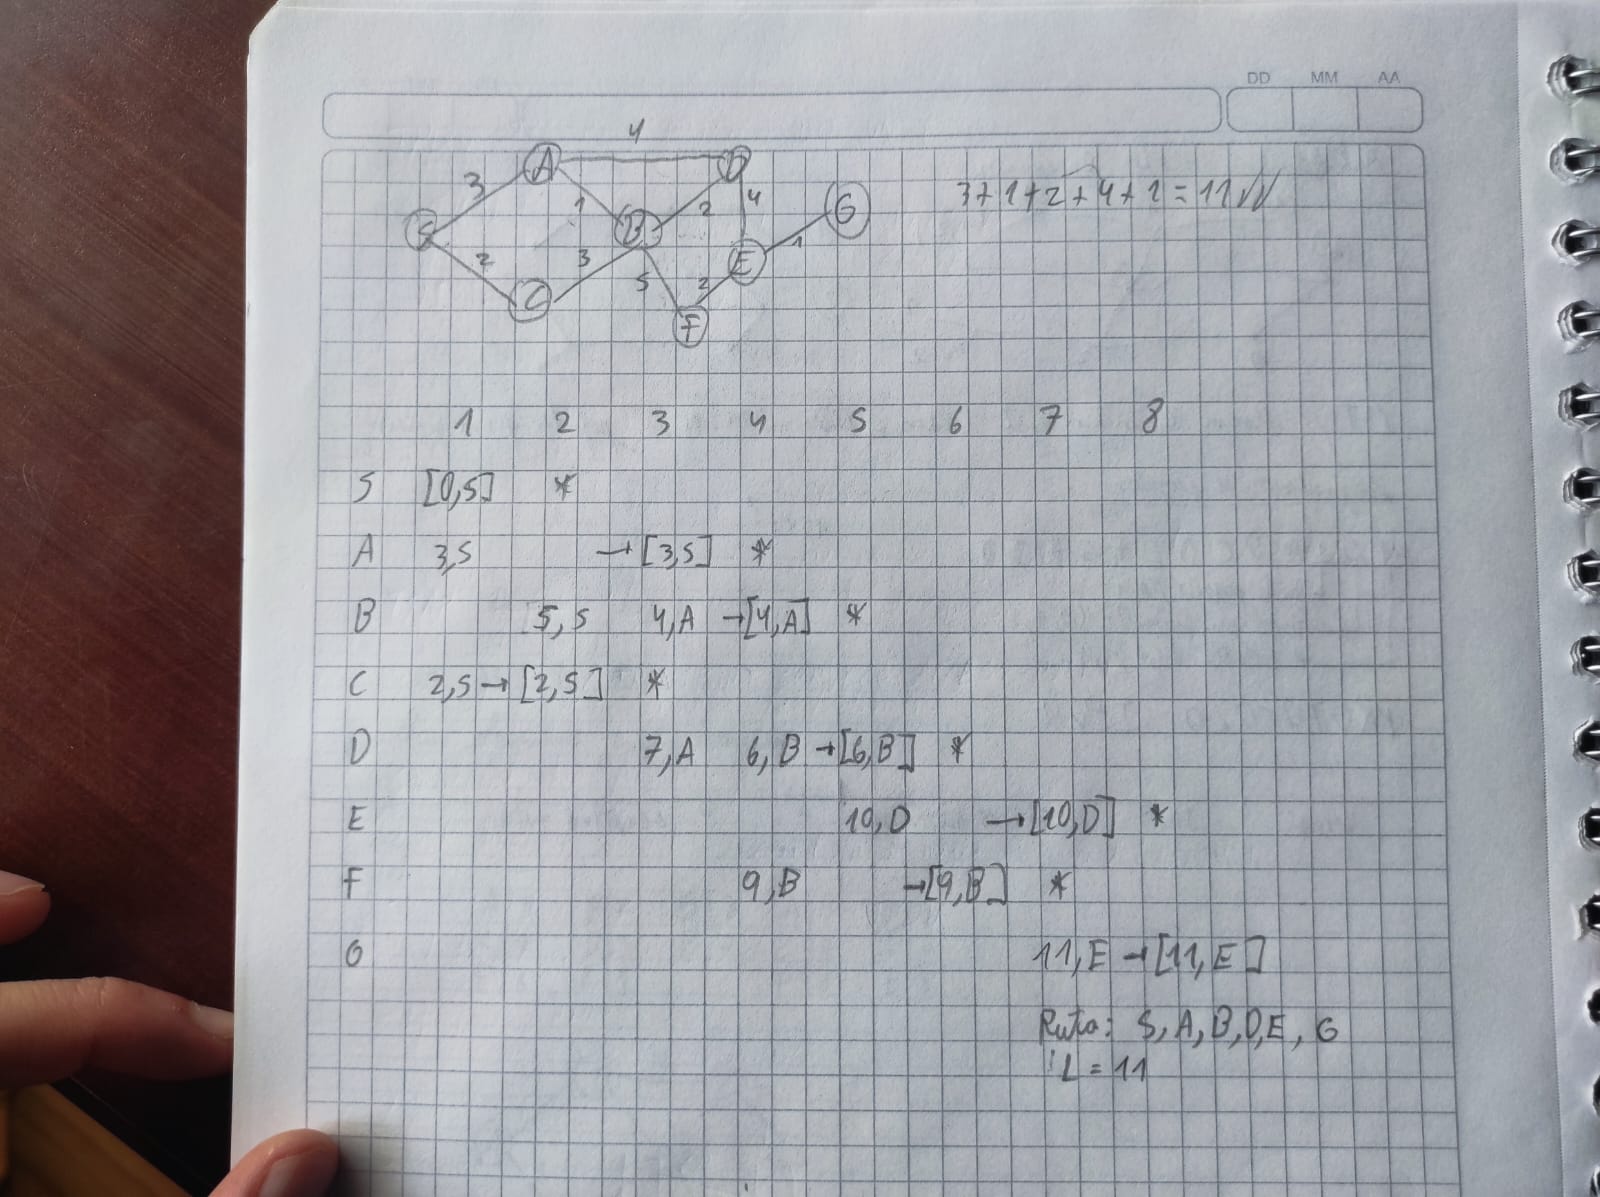 DD MM AA
4
A D
3 1 2 4 G 3+1+2+4+1=11
S B
2 3 5 2 E 1
C F
1 2 3 4 5 6 7 8
S [0,S] *
A 3,S → [3,S] *
B 5,S 4,A → [4,A] *
C 2,S → [2,S] *
D 7,A 6,B → [6,B] *
E 10,D → [10,D] *
F 9,B → [9,B] *
G 11,E → [11,E]
Ruta: S, A, B, D, E, G
L = 11